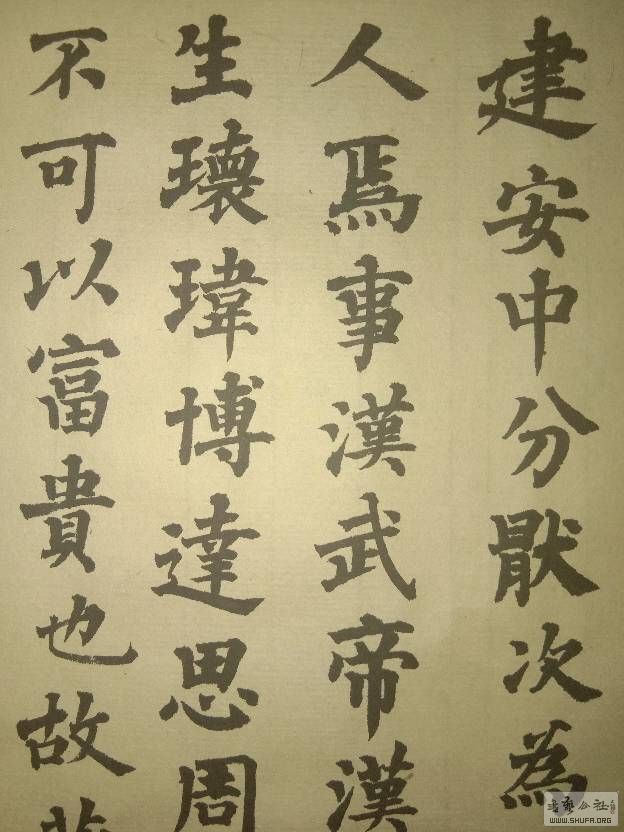 建安中分猒次為
人焉事漢武帝漢
生瓌瑋博達思周
不可以富貴也故
WWW.SHUFA.ORG